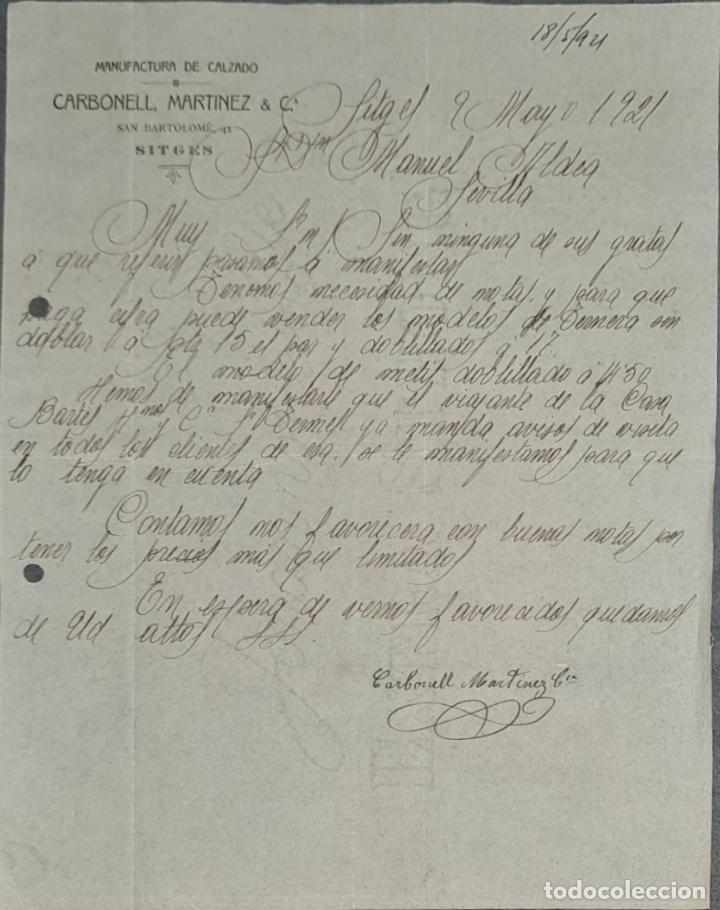 18/5/921
MANUFACTURA DE CALZADO
CARBONELL, MARTINEZ & C.ª
SAN BARTOLOMÉ, 42
SITGES
Sitges 9 Mayo 1921
Sr Dn Manuel Aldea
Sevilla
Muy Sr. n/ Sin ninguna de sus gratas
á que referir pasamos á manifestar
Tenemos necesidad de notas y para que
haga cifra puede vender los modelos de Ternera sin
doblar á pts 15 el par y dobllillados á 17.
El modelo de metis dobllillado á 14'50
Hemos de manifestarle que el viajante de la Casa
Bartes Hnos y Cª Sr Termes ya manda avisos de visita
en todos los clientes de esa. se le manifestamos para que
lo tenga en cuenta
Contamos nos favorecera con buenas notas por
tener los precios más que limitados
En espera de vernos favorecidos quedamos
de Ud attos SSS.
Carbonell Martinez Cia
todocoleccion